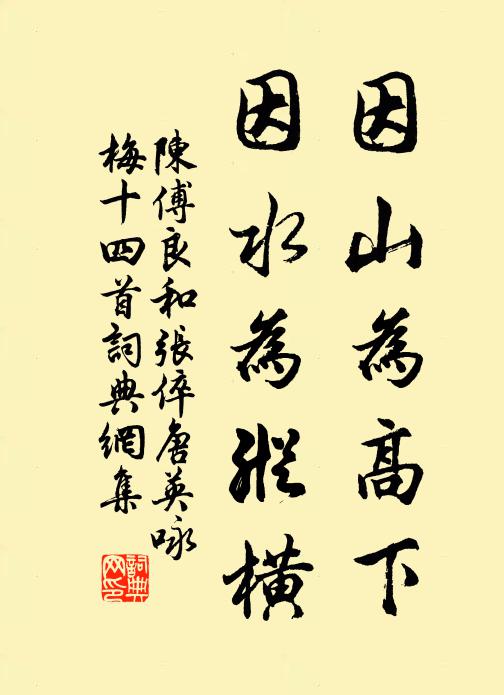 因山為高下
因水為縱橫
陳傅良和張倅唐英咏
梅十四首詞典網集
詞典
网印